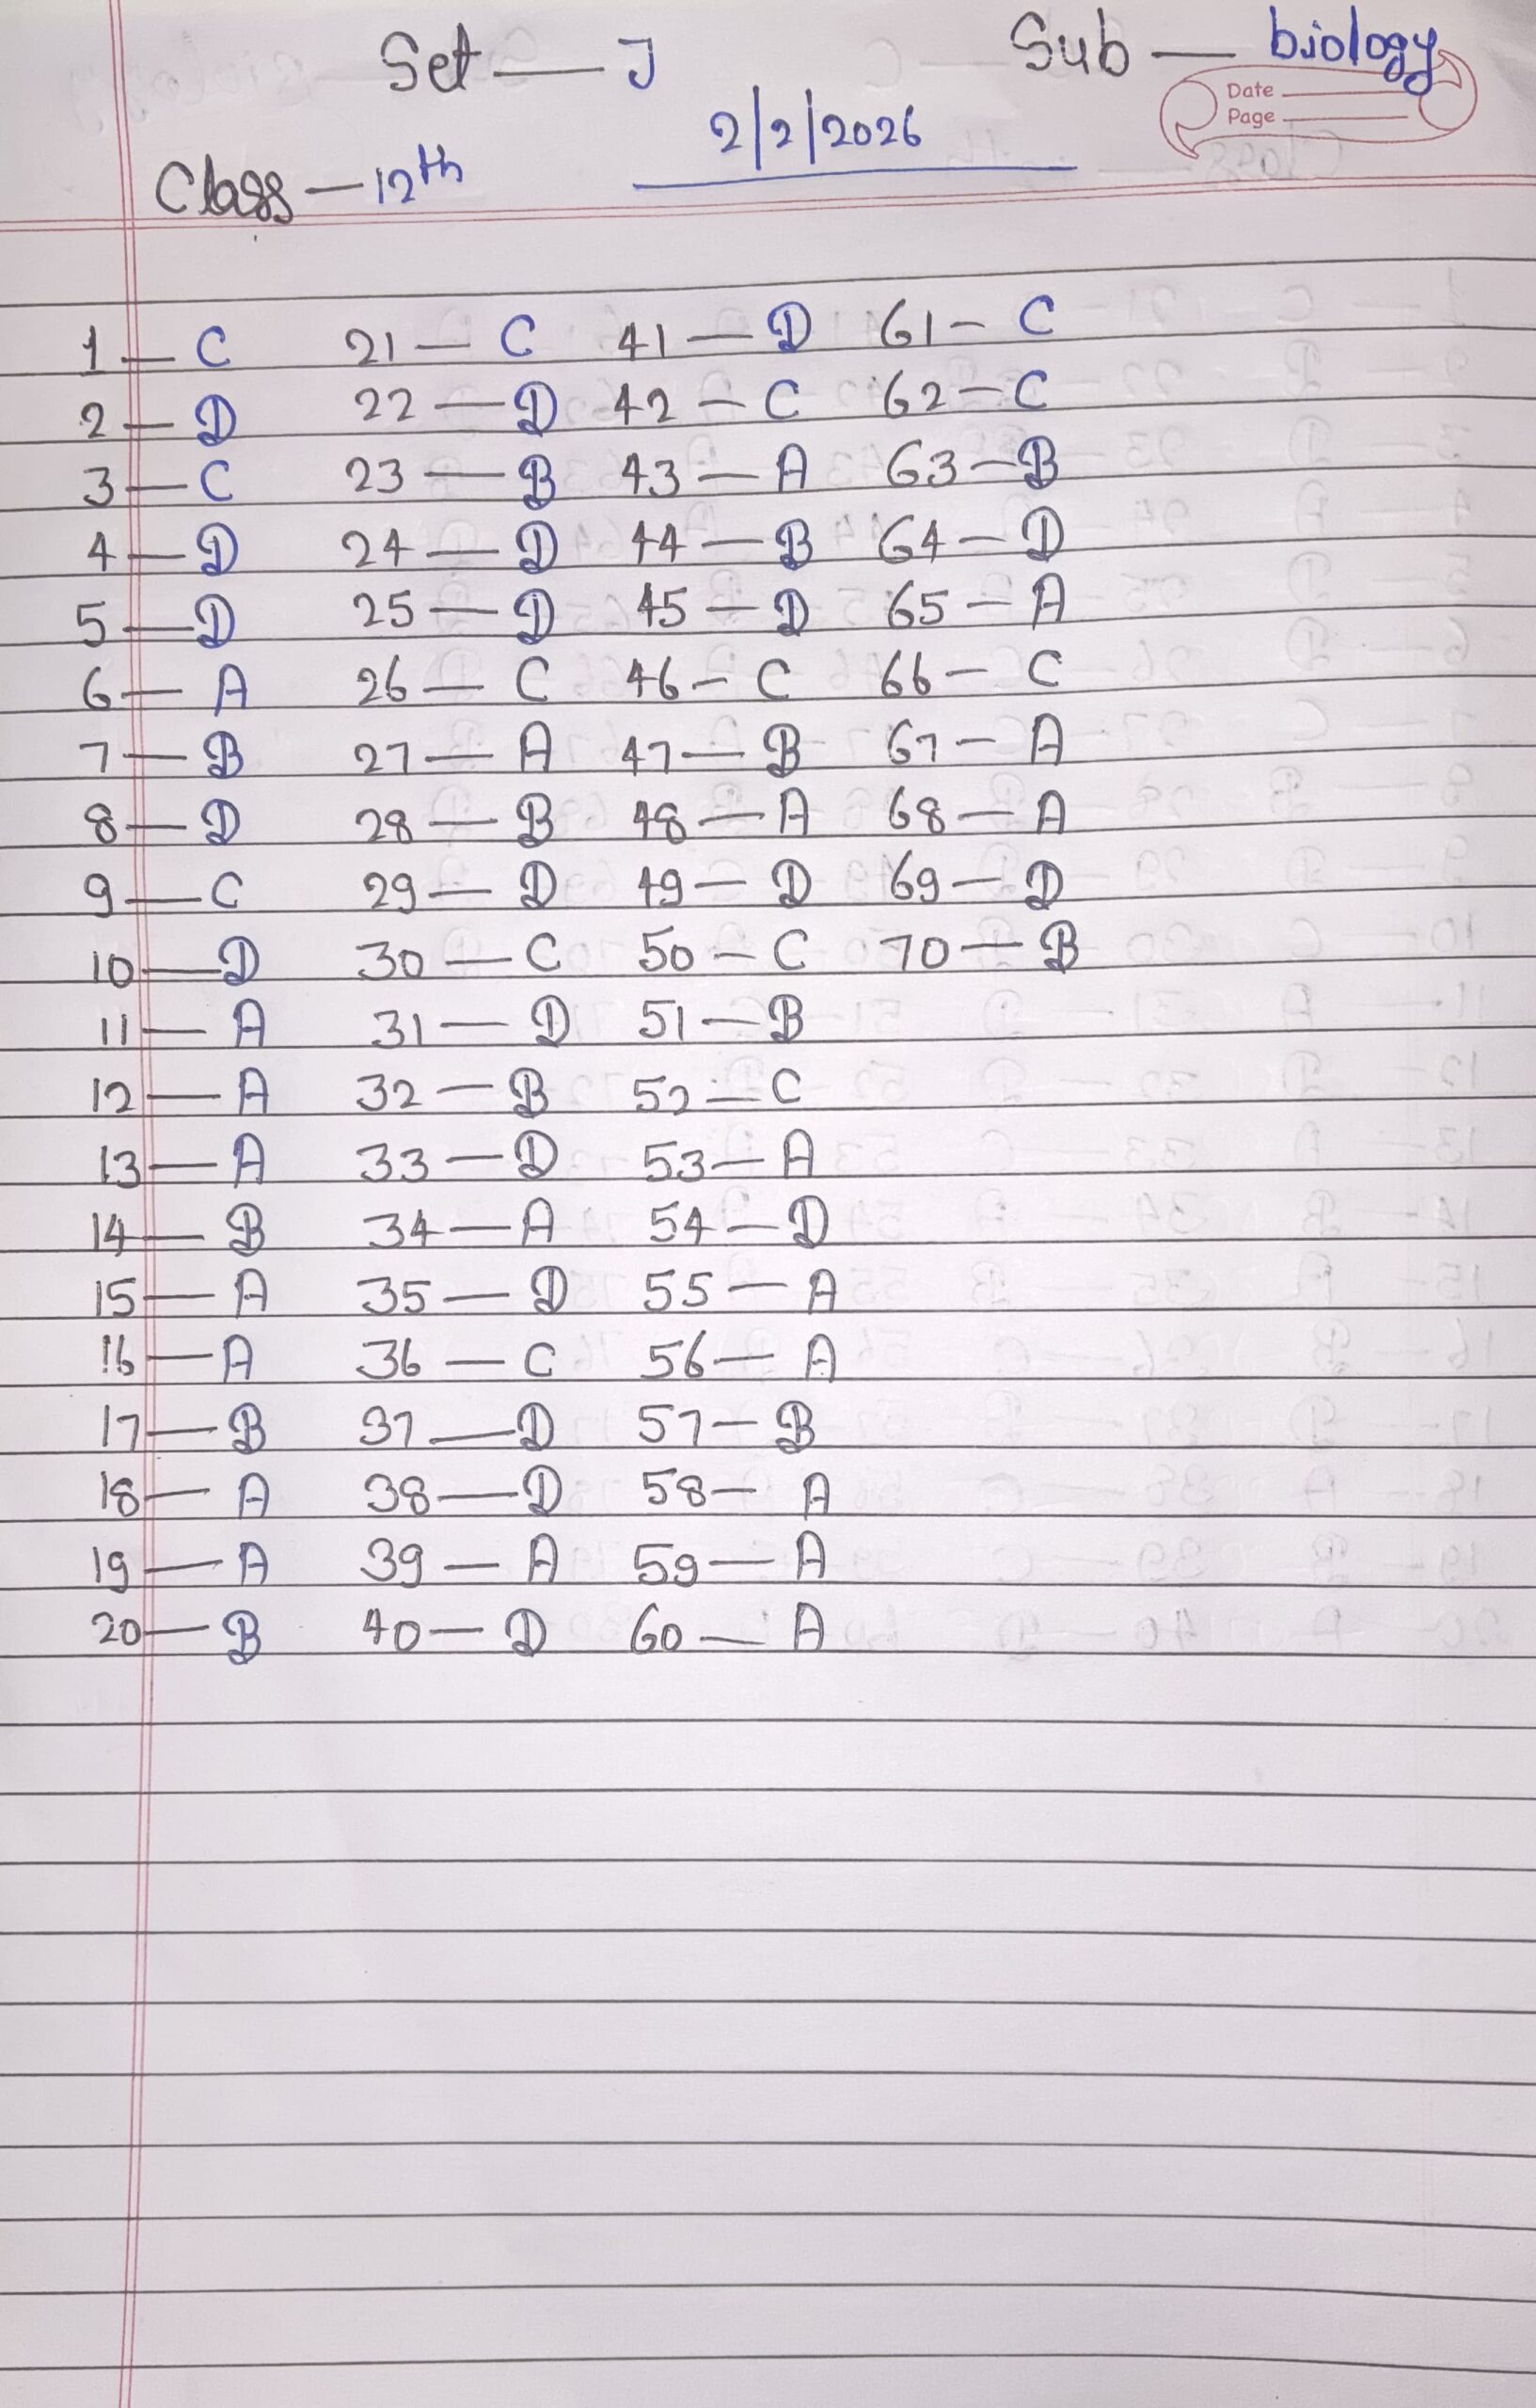 Set — J Sub — biology
Date
Page
2/2/2026
Class — 12th
1 — C 21 — C 41 — D 61 — C
2 — D 22 — D 42 — C 62 — C
3 — C 23 — B 43 — A 63 — B
4 — D 24 — D 44 — B 64 — D
5 — D 25 — D 45 — D 65 — A
6 — A 26 — C 46 — C 66 — C
7 — B 27 — A 47 — B 67 — A
8 — D 28 — B 48 — A 68 — A
9 — C 29 — D 49 — D 69 — D
10 — D 30 — C 50 — C 70 — B
11 — A 31 — D 51 — B
12 — A 32 — B 52 — C
13 — A 33 — D 53 — A
14 — B 34 — A 54 — D
15 — A 35 — D 55 — A
16 — A 36 — C 56 — A
17 — B 37 — D 57 — B
18 — A 38 — D 58 — A
19 — A 39 — A 59 — A
20 — B 40 — D 60 — A